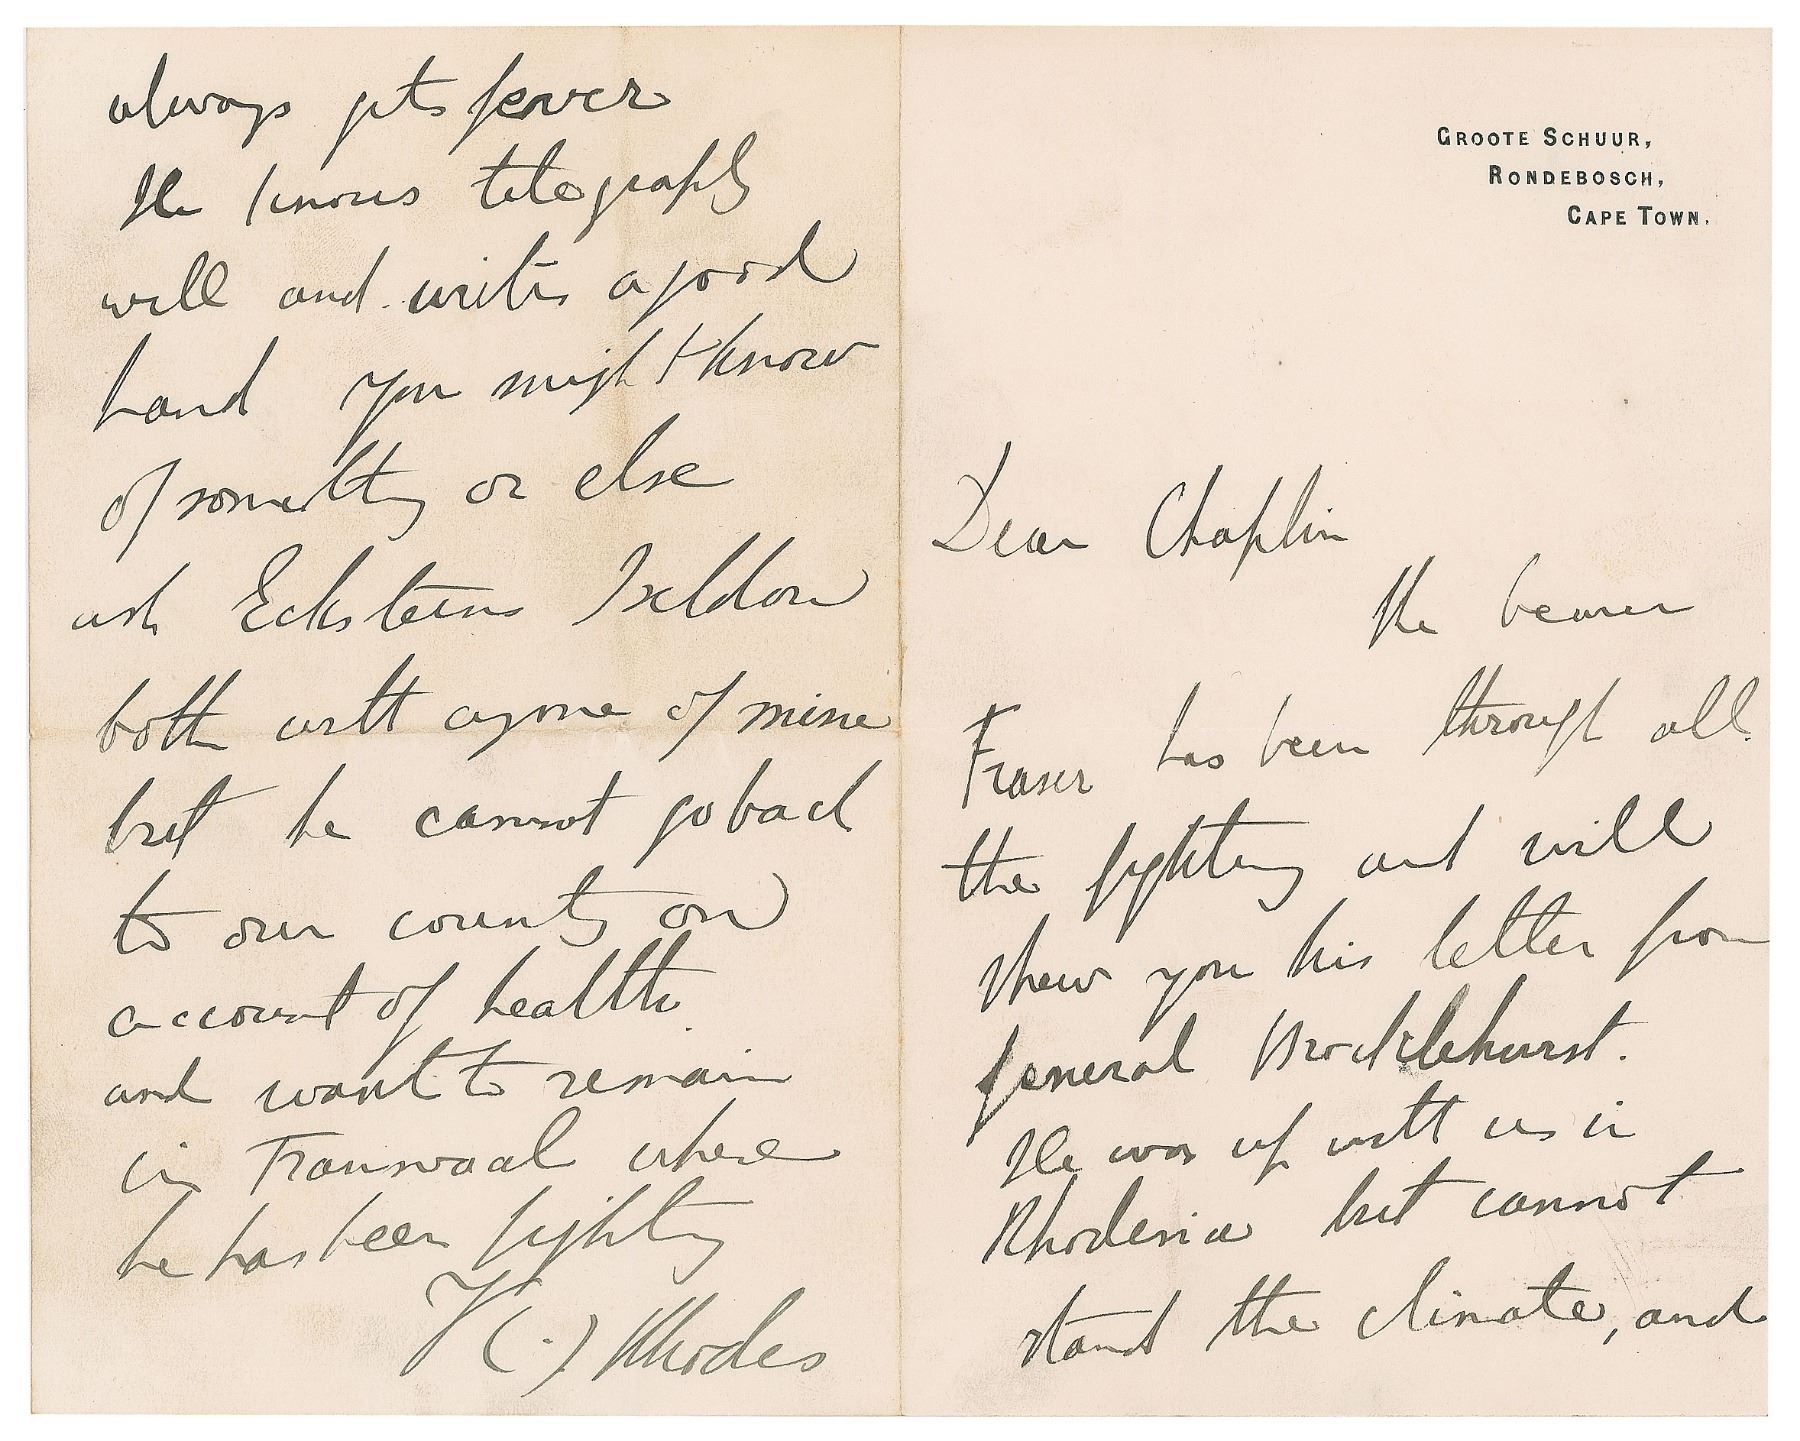 GROOTE SCHUUR,
RONDEBOSCH,
CAPE TOWN.
Dear Chaplin
The bearer
Fraser has been through all
the fighting and will
shew you his letter from
General Brocklehurst.
He was up with us in
Rhodesia but cannot
stand the climate, and
always gets fever
He knows telegraphy
well and writes a good
hand you might know
of something or else
ask Ecksteins
both with a gone of mine
but he cannot go back
to our country on
account of health
and want to remain
in Transvaal where
he has been fighting
Y C J Rhodes